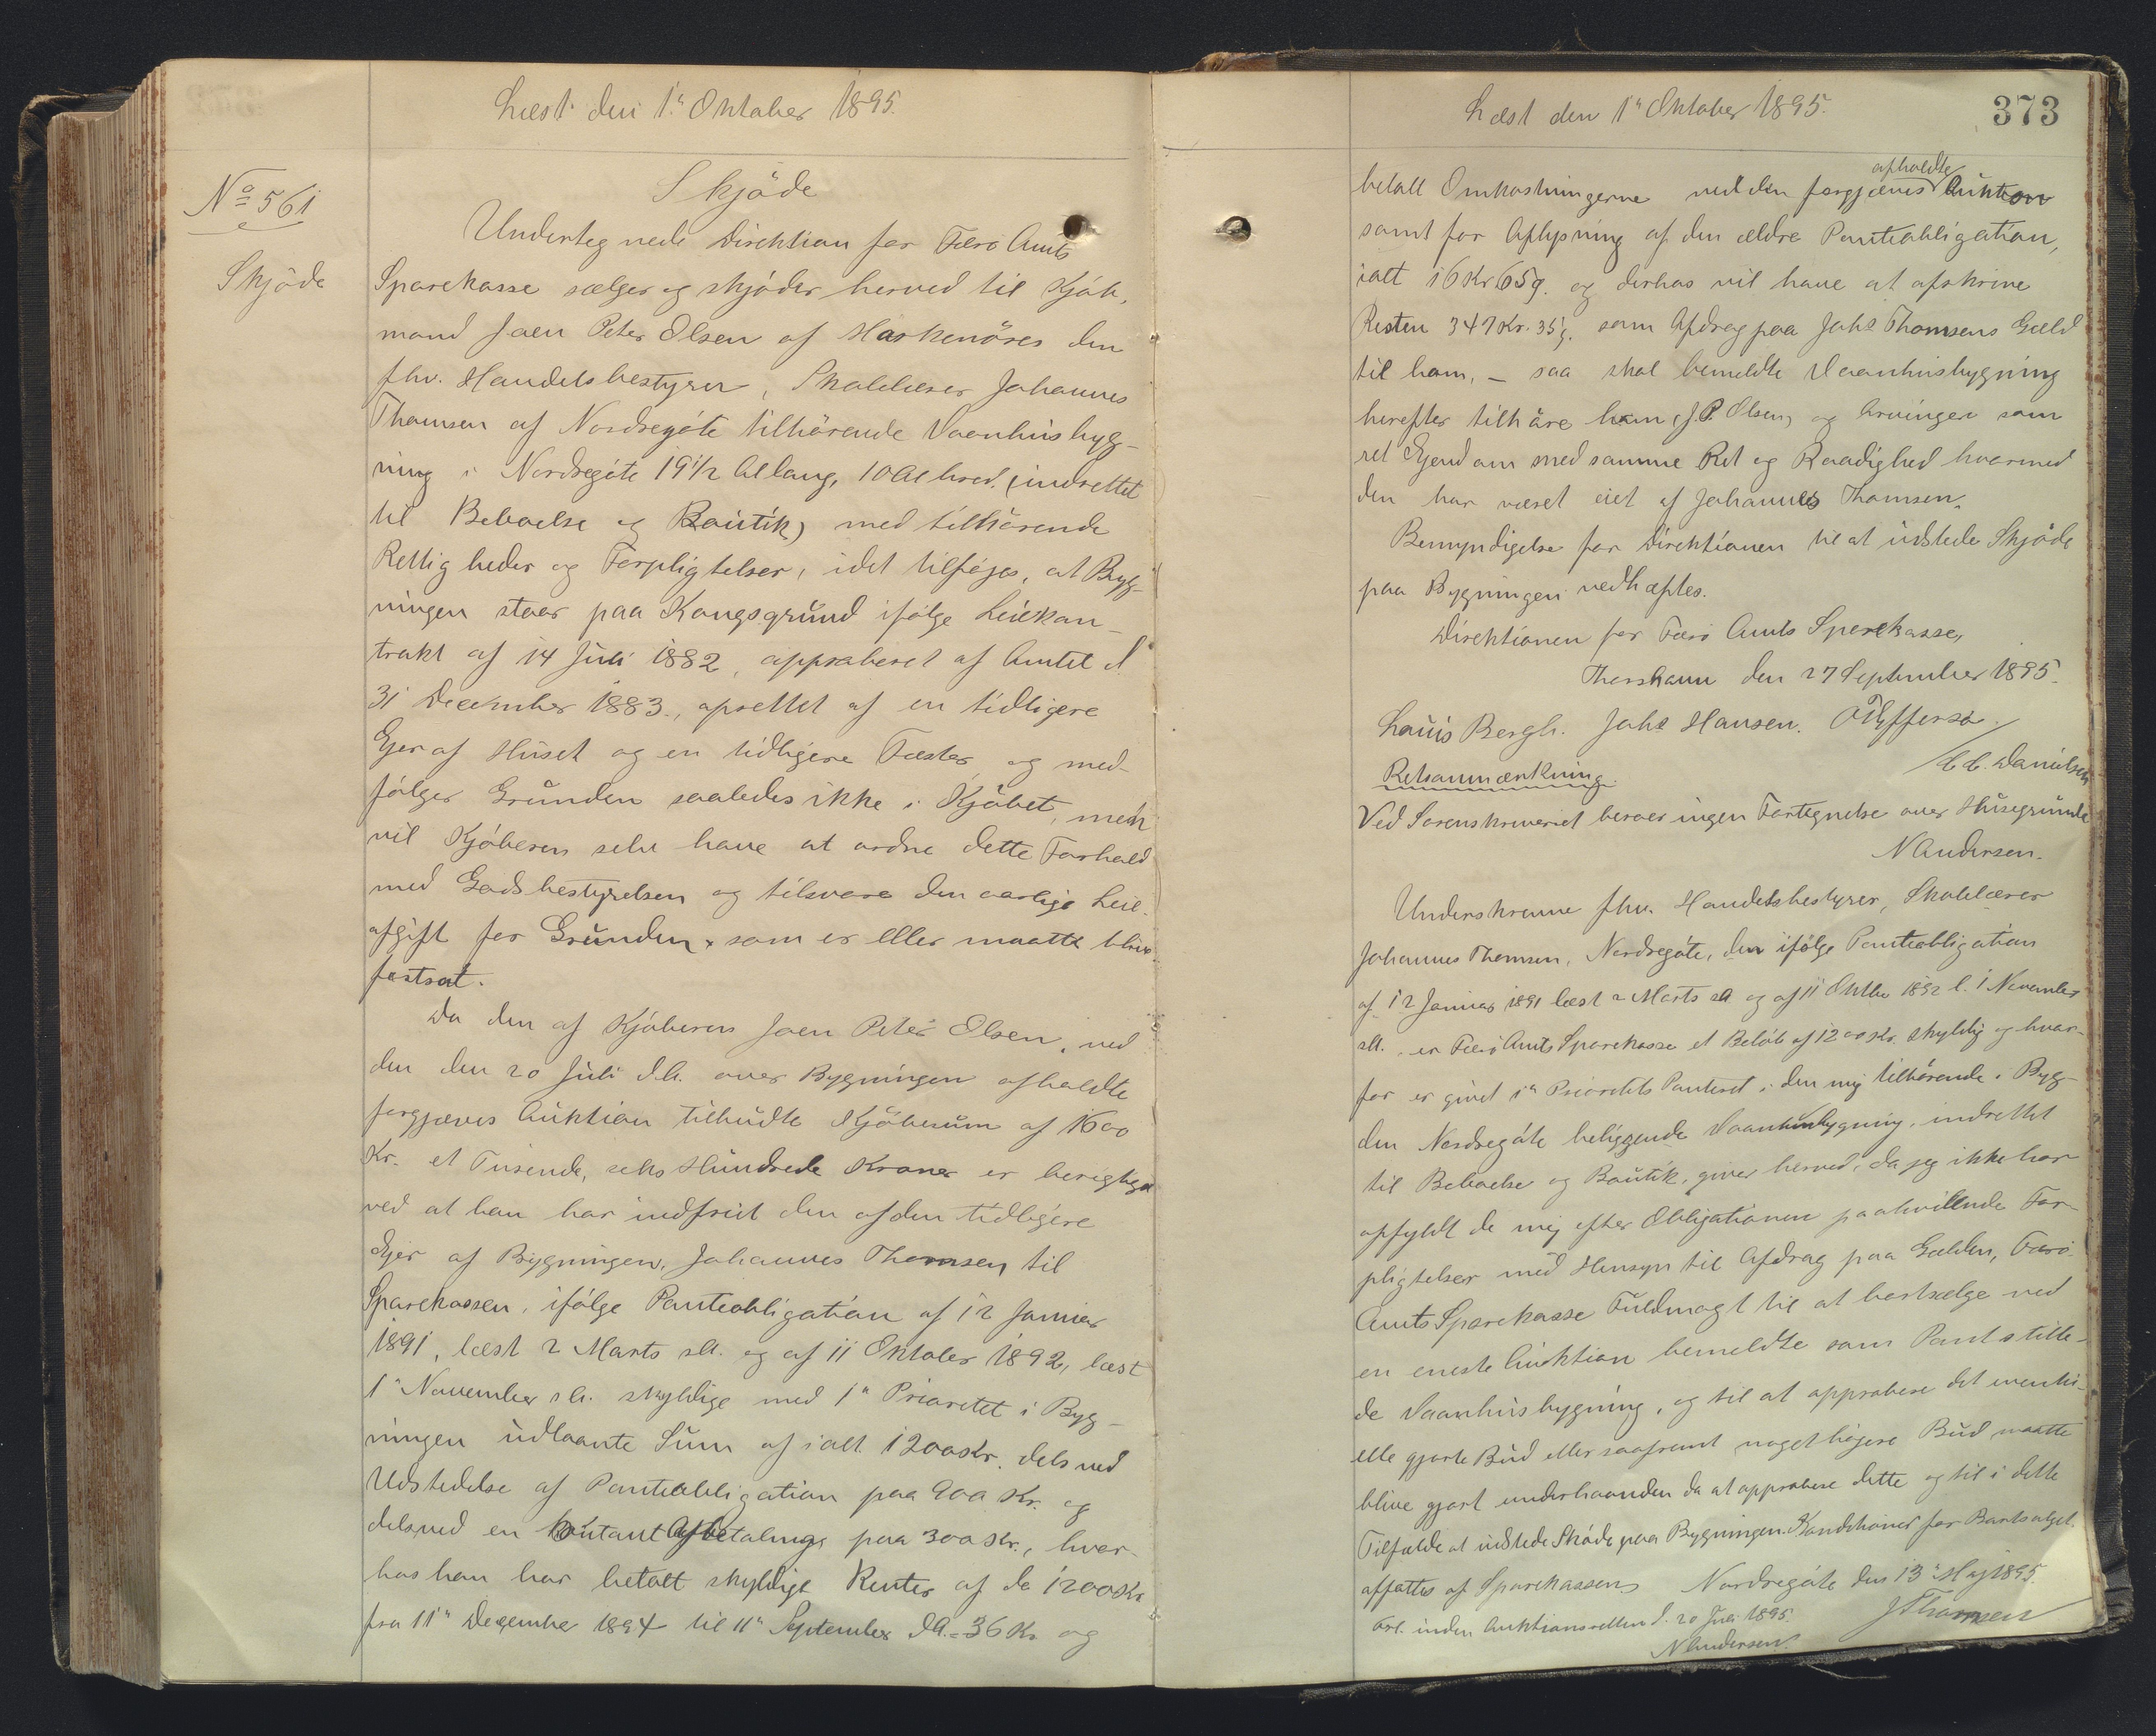 Læst den 1ª Oktober 1895.
No 561
Skjöde
Skjöde
Undertegnede Direktion for Færö Amts
Sparekasse sælger og skjöder herved til Kjöb-
mand Joen Peter Olsen af Maskenöres den
fhv. Handelsbestyrer, Skolelærer Johannes
Thomsen af Nordregöte tilhörende Vaanhusbyg-
ning i Nordregöte 19 1/2 Al lang, 10 Al bred. (indrettet
til Beboelse og Boutik) med tilhörende
Rettigheder og Forpligtelser, idet tilföjes, at Byg-
ningen staar paa Kongsgrund ifölge Leiekon-
trakt af 14 Juli 1882, approberet af Amtet d.
31 December 1883., oprettet af en tidligere
Ejer af Huset og en tidligere Fæster og med-
fölger Grunden saaledes ikke i Kjöbet, men
vil Kjöberen selv have at ordne dette Forhold
med Godsbestyrelsen og tilsvare den aarlige Leie-
afgift for Grunden, som er eller maatte blive
fastsat.
Da den af Kjöberen Joen Peter Olsen, ved
den den 20 Juli d.A. over Bygningen afholdte
forgjæves Auktion tilbudte Kjöbesum af 1600
Kr. et Tusende, seks Hundrede Kroner er berigtiget
ved at han har indfriet den af den tidligere
Ejer af Bygningen, Johannes Thomsen til
Sparekassen, ifölge Panteobligation af 12 Januar
1891, læst 2 Marts s.A. og af 11 Oktober 1892, læst
1ª November s.A. skyldige med 1ª Prioritet i Byg-
ningen udlaante Sum af ialt 1200 Kr. dels ved
Udstedelse af Panteobligation paa 900 Kr. og
dels ved en kontant Afbetaling paa 300 Kr., hvor-
hos han har betalt skyldige Renter af de 1200 Kr
fra 11ª December 1894 til 11ª September d.A. = 36 Kr og
Læst den 1ª Oktober 1895.
373
betalt Omkostningerne ved den forgjæves afholdte Auktion
samt for Aflysning af den ældre Panteobligation,
ialt 16 Kr 65 ø. og derhos vil have at afskrive
Resten 347 Kr. 35 ø. som Afdrag paa Johs Thomsens Gæld
til ham, – saa skal bemeldte Vaanhusbygning
herefter tilhöre ham (J.P. Olsen) og Arvinger som
ret Ejendom med samme Ret og Raadighed hvormed
den har været eiet af Johannes Thomsen.
Bemyndigelse for Direktionen til at udstede Skjöde
paa Bygningen vedhæftes.
Direktionen for Færö Amts Sparekasse,
Thorshavn den 27 September 1895.
Louis Bergh. Johs Hansen. O Effersø.
/C.C. Danielsen
Retsanmærkning.
Ved Sorenskriveriet beroer ingen Fortegnelse over Husegrunde
N Andersen.
Underskrevne fhv. Handelsbestyrer, Skolelærer
Johannes Thomsen, Nordregöte, der ifölge Panteobligation
af 12 Januar 1891 læst 2 Marts s.A og af 11 Oktbr 1892 l. 1 November
s.A. er Færö Amts Sparekasse et Belöb af 1200 Kr. skyldig og hvor-
for er givet 1ª Prioritets Panteret i den mig tilhörende i Byg-
den Nordregöte beliggende Vaanhusbygning, indrettet
til Beboelse og Boutik, giver herved, da jeg ikke har
opfyldt de mig efter Obligationen paahvilende For-
pligtelser med Hensyn til Afdrag paa Gælden, Færö
Amts Sparekasse Fuldmagt til at bortsælge ved
en eneste Auktion bemeldte som Pant stille-
de Vaanhusbygning, og til at approbere det eventu-
elle gjorte Bud eller saafremt noget höjere Bud maatte
blive gjort underhaanden da at approbere dette og til i dette
Tilfælde at udstede Sköde paa Bygningen. Konditioner for Bortsalget
affattes af Sparekassen. Nordregöte den 13ª Maj 1895.
J Thomsen
Frl. inden Auktionsretten d. 20 Juli 1895.
N Andersen.